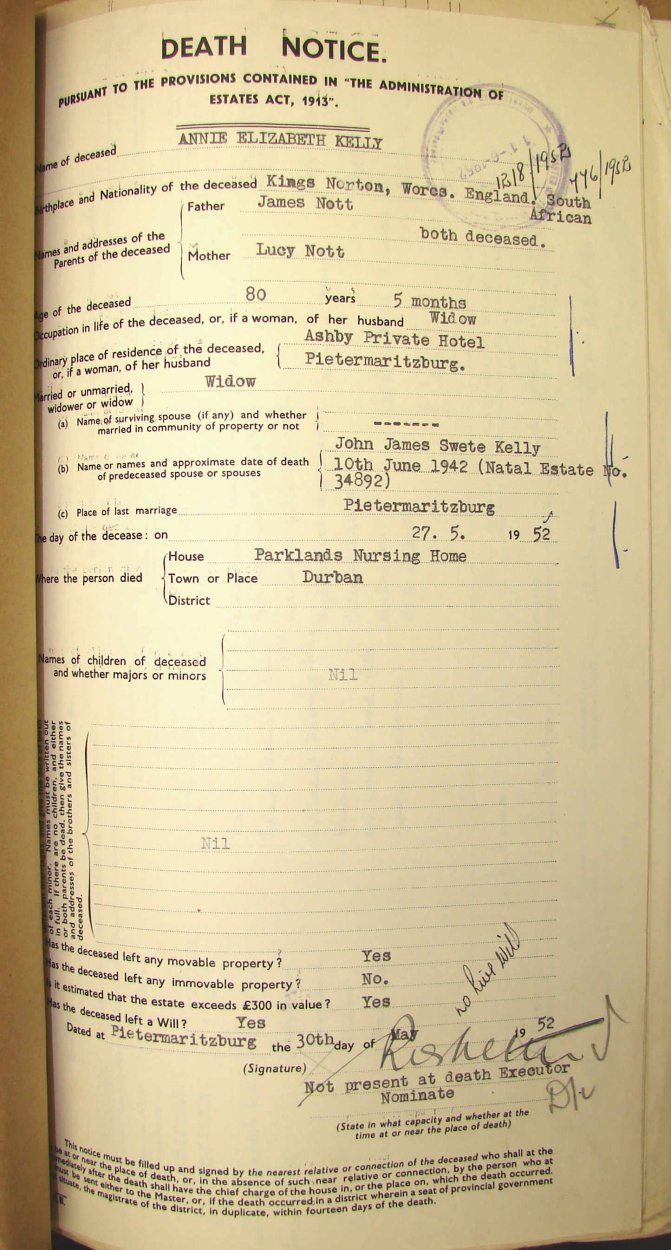 DEATH NOTICE.
PURSUANT TO THE PROVISIONS CONTAINED IN "THE ADMINISTRATION OF
ESTATES ACT, 1913".
Name of deceased ANNIE ELIZABETH KELLY
1318/1952 776/1952
Birthplace and Nationality of the deceased Kings Norton, Worcs. England. South
African
Names and addresses of the
Parents of the deceased
Father James Nott
both deceased.
Mother Lucy Nott
Age of the deceased 80 years 5 months
Occupation in life of the deceased, or, if a woman, of her husband Widow
Ordinary place of residence of the deceased,
or, if a woman, of her husband
Ashby Private Hotel
Pietermaritzburg.
Married or unmarried,
widower or widow
Widow
(a) Name of surviving spouse (if any) and whether
married in community of property or not
-------
(b) Name or names and approximate date of death
of predeceased spouse or spouses
John James Swete Kelly
10th June 1942 (Natal Estate No.
34892)
(c) Place of last marriage Pietermaritzburg
The day of the decease: on 27. 5. 19 52
Where the person died
House Parklands Nursing Home
Town or Place Durban
District
Names of children of deceased
and whether majors or minors
Nil
of each minor. Names must be written out
in full. If there are no children, and either
or both parents be dead, then give the names
and addresses of the brothers and sisters of
deceased.
Nil
Has the deceased left any movable property? Yes
Has the deceased left any immovable property? No.
Is it estimated that the estate exceeds £300 in value? Yes
Has the deceased left a Will? Yes
no live will
Dated at Pietermaritzburg the 30th day of May 19 52
(Signature)
Not present at death Executor
Nominate
(State in what capacity and whether at the
time at or near the place of death)
This notice must be filled up and signed by the nearest relative or connection of the deceased who shall at the
be at or near the place of death, or, in the absence of such near relative or connection, by the person who at
immediately after the death shall have the chief charge of the house in, or the place on, which the death occurred.
must be sent either to the Master, or, if the death occurred in a district wherein a seat of provincial government
situate, the magistrate of the district, in duplicate, within fourteen days of the death.